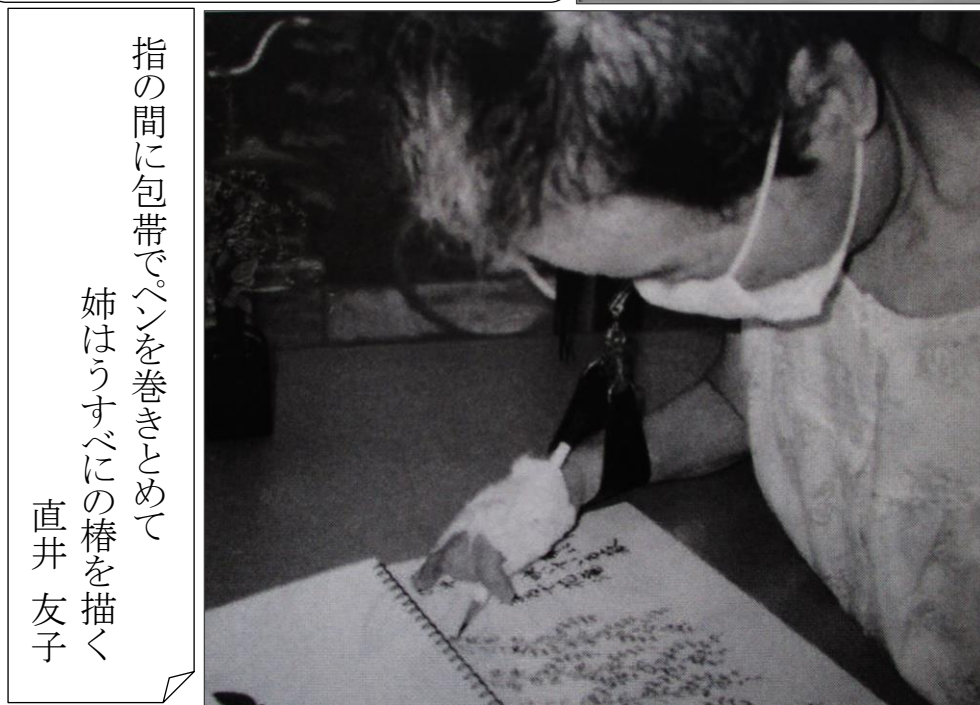 指の間に包帯でペンを巻きとめて
姉はうすべにの椿を描く
直井 友子